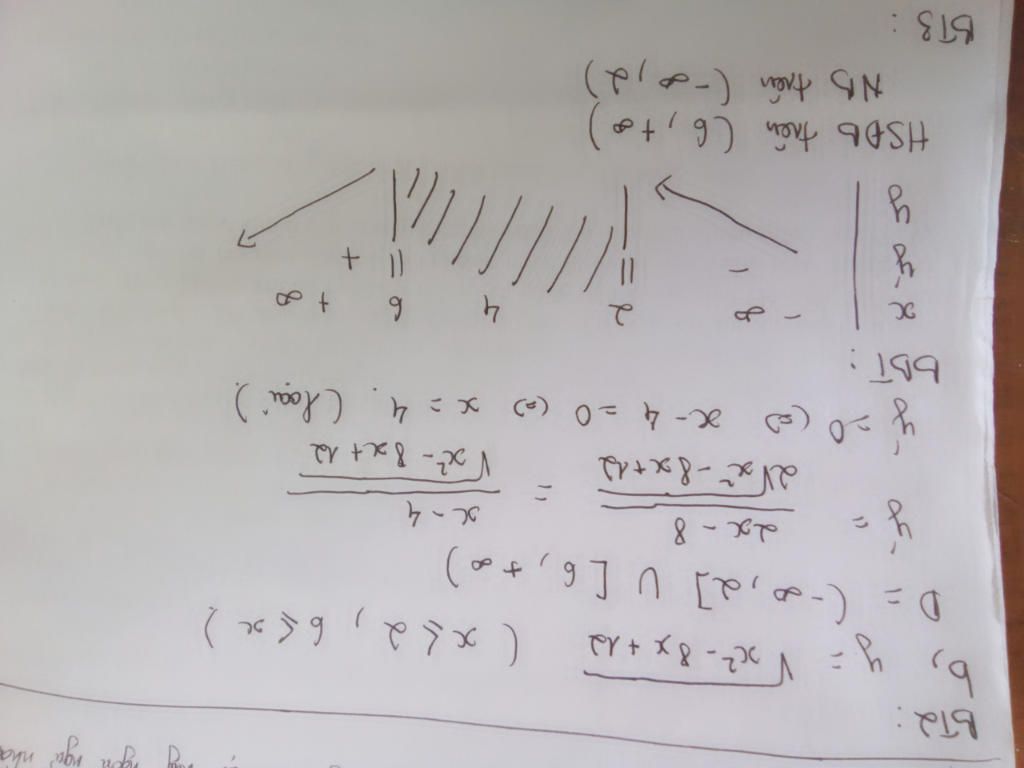 ngã nhau
BT2 :
b, y = √x² - 8x + 12 ( x ≤ 2 , 6 ≤ x )
D = (-∞, 2] ∪ [6, +∞)
y' = 2x - 8 / 2√x² - 8x + 12 = x - 4 / √x² - 8x + 12
y' = 0 (=) x - 4 = 0 (=) x = 4 . (loại)
BBT :
x -∞ 2 4 6 +∞
y' - || || +
y
HSĐB trên (6, +∞)
NB trên (-∞, 2)
BT3 :